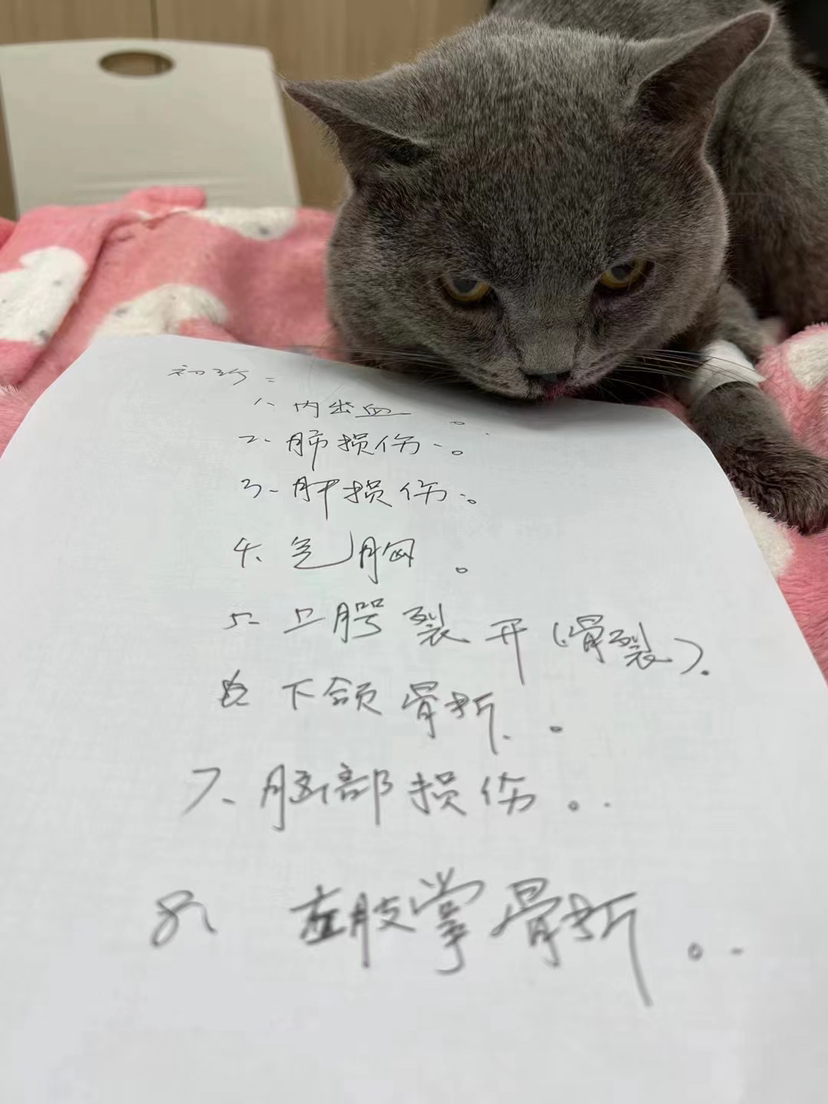 初诊：
1、内出血。
2、肺损伤。
3、肝损伤。
4、气胸。
5、上腭裂开(骨裂).
6、下颌骨折。
7、脑部损伤。
8、左肢掌骨折。